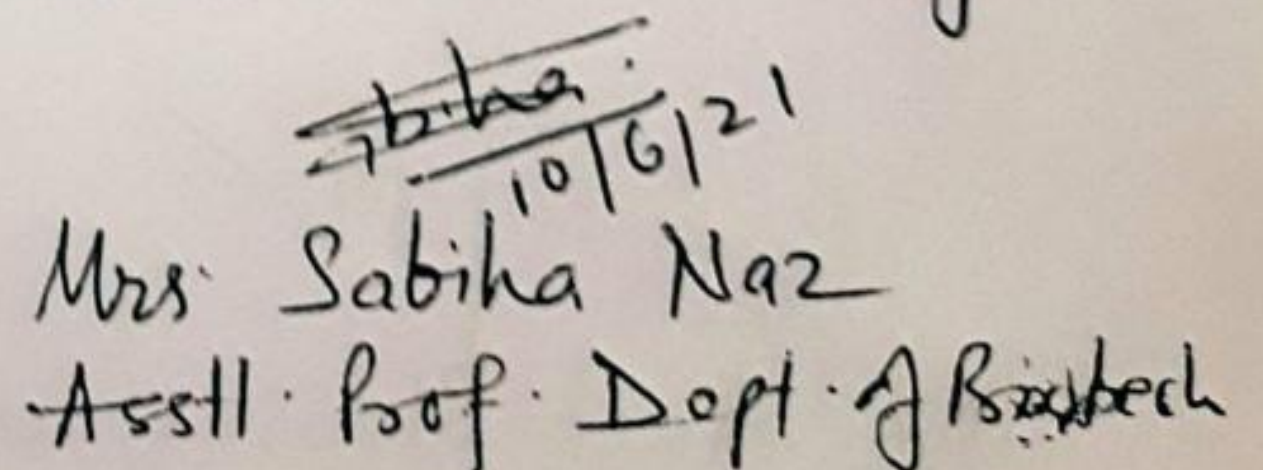 10/6/21
Mrs. Sabiha Naz
Asstt. Prof. Dept. of Biotech